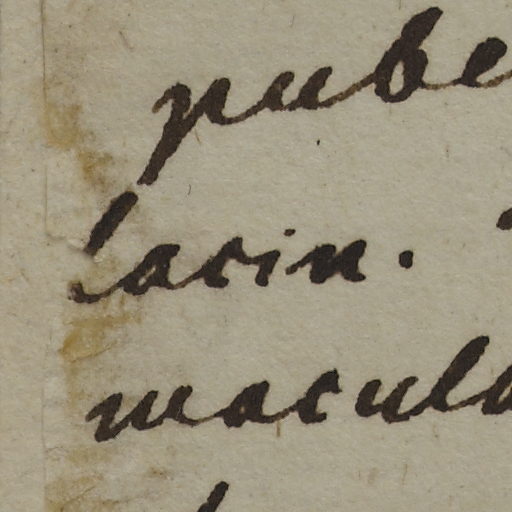 pube
lacin.
macula